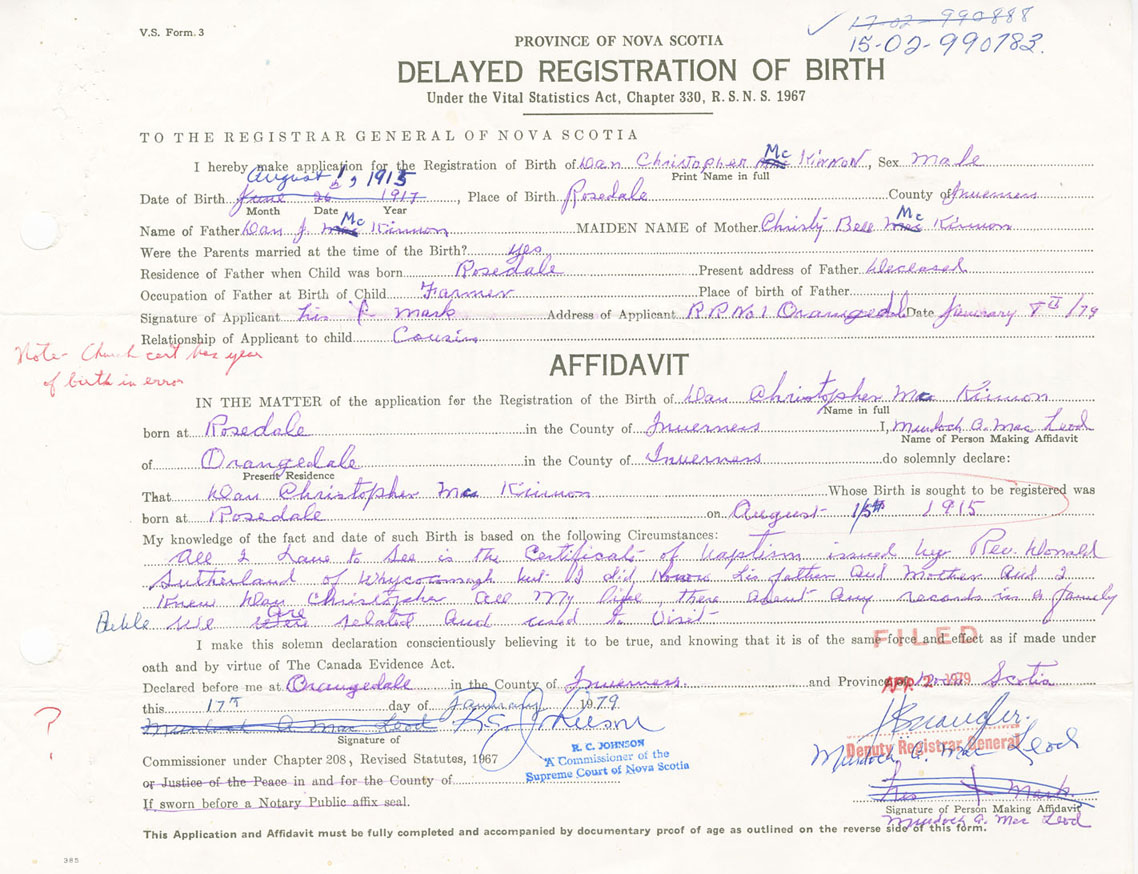 V.S. Form. 3
17-02-990888
15-02-990783.
PROVINCE OF NOVA SCOTIA
DELAYED REGISTRATION OF BIRTH
Under the Vital Statistics Act, Chapter 330, R. S. N. S. 1967
TO THE REGISTRAR GENERAL OF NOVA SCOTIA
I hereby make application for the Registration of Birth of Dan Christopher Mc Kinnon, Sex Male
Print Name in full
August 1, 1915
Date of Birth June 26 1917, Place of Birth Rosedale County of Inverness
Month Date Year
Name of Father Dan J. Mc Kinnon MAIDEN NAME of Mother Christy Bell Mc Kinnon
Were the Parents married at the time of the Birth? yes
Residence of Father when Child was born Rosedale Present address of Father Deceased
Occupation of Father at Birth of Child Farmer Place of birth of Father
Signature of Applicant his mark Address of Applicant R.R. No 1 Orangedale Date January /79
Relationship of Applicant to child Cousin
Note - Church cert has year
of birth in error
AFFIDAVIT
IN THE MATTER of the application for the Registration of the Birth of Dan Christopher Mc Kinnon
Name in full
born at Rosedale in the County of Inverness I, Murdoch A. Mac Leod
Name of Person Making Affidavit
of Orangedale in the County of Inverness do solemnly declare:
Present Residence
That Dan Christopher Mc Kinnon Whose Birth is sought to be registered was
born at Rosedale on August 1915
My knowledge of the fact and date of such Birth is based on the following Circumstances:
All I have to See is the Certificate of Baptism issued by Rev. Donald
Sutherland of Whycocomagh but I did know his father and Mother and I
Knew Dan Christopher all My life there arent any records in a family
Bible we are related and used to Visit
I make this solemn declaration conscientiously believing it to be true, and knowing that it is of the same force and effect as if made under
FILED
oath and by virtue of The Canada Evidence Act.
Declared before me at Orangedale in the County of Inverness and Province of Nova Scotia
APR 2 1979
this 17th day of January 1979
Murdoch A Mac Leod R.C. Johnson
Signature of
Deputy Registrar General
Murdoch A. Mac Leod
R. C. JOHNSON
A Commissioner of the
Supreme Court of Nova Scotia
Commissioner under Chapter 208, Revised Statutes, 1967
or Justice of the Peace in and for the County of
His Mark
If sworn before a Notary Public affix seal.
Signature of Person Making Affidavit
Murdoch A. Mac Leod
This Application and Affidavit must be fully completed and accompanied by documentary proof of age as outlined on the reverse side of this form.
385
?